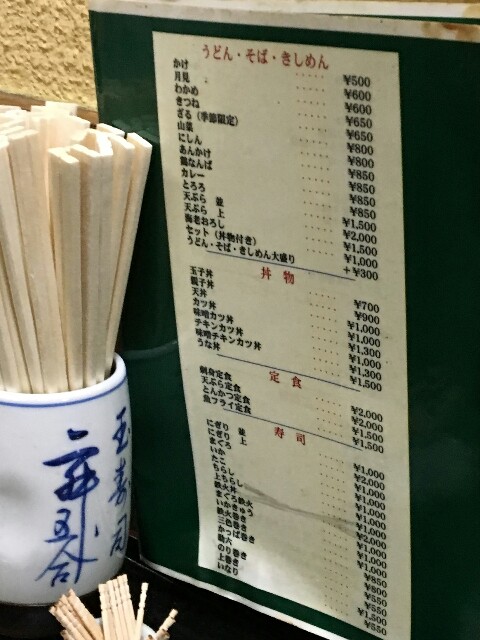 うどん・そば・きしめん
かけ ..... ¥500
月見 ..... ¥600
わかめ ..... ¥600
きつね ..... ¥650
ざる（季節限定） ..... ¥650
山菜 ..... ¥800
にしん ..... ¥800
あんかけ ..... ¥850
鶏なんば ..... ¥850
カレー ..... ¥850
とろろ ..... ¥850
天ぷら 並 ..... ¥1,500
天ぷら 上 ..... ¥2,000
海老おろし ..... ¥1,500
セット（丼物付き） ..... ¥1,000
うどん・そば・きしめん大盛り +¥300
丼物
玉子丼 ..... ¥700
親子丼 ..... ¥900
天丼 ..... ¥1,000
カツ丼 ..... ¥1,000
味噌カツ丼 ..... ¥1,300
チキンカツ丼 ..... ¥1,000
味噌チキンカツ丼 ..... ¥1,300
うな丼 ..... ¥1,500
定食
刺身定食 ..... ¥2,000
天ぷら定食 ..... ¥2,000
とんかつ定食 ..... ¥1,500
魚フライ定食 ..... ¥1,500
寿司
にぎり 並 ..... ¥1,000
にぎり 上 ..... ¥2,000
まぐろ ..... ¥1,000
いか ..... ¥1,000
たこ ..... ¥1,000
ちらし ..... ¥1,000
上ちらし ..... ¥2,000
鉄火丼 ..... ¥1,000
まぐろ鉄火 ..... ¥1,000
いかきゅう ..... ¥1,000
鉄火巻き ..... ¥1,000
三色巻き ..... ¥850
かっぱ巻き ..... ¥800
助六
のり巻き ..... ¥550
上巻き ..... ¥1,500
いなり ..... ¥550
玉寿司